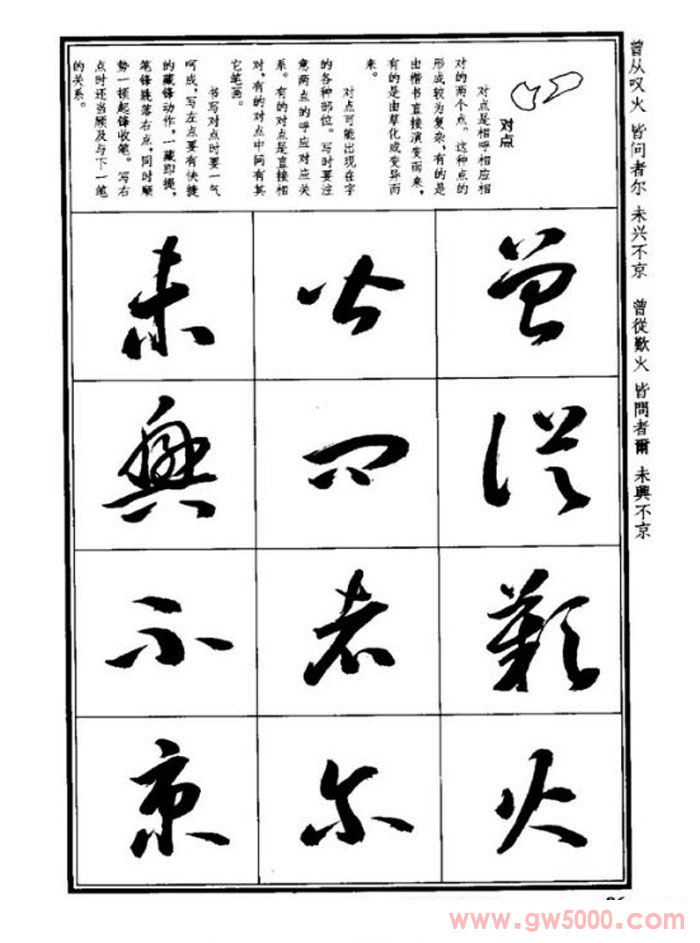 曾从叹火 皆问者尔 未兴不京 曾從歎火 皆問者爾 未興不京
对点
对点是相呼相应相
对的两个点。这种点的
形成较为复杂,有的是
由楷书直接演变而来,
有的是由草化或变异而
来。
对点可能出现在字
的各种部位。写时要注
意两点的呼应对应关
系。有的对点是直接相
对,有的对点中间有其
它笔画。
书写对点时要一气
呵成,写左点要有快捷
的藏锋动作,一藏即提,
笔锋跳落右点,同时顺
势一顿起锋收笔。写右
点时还当顾及与下一笔
的关系。
曾從歎火
皆問者爾
未興不京
www.gw5000.com